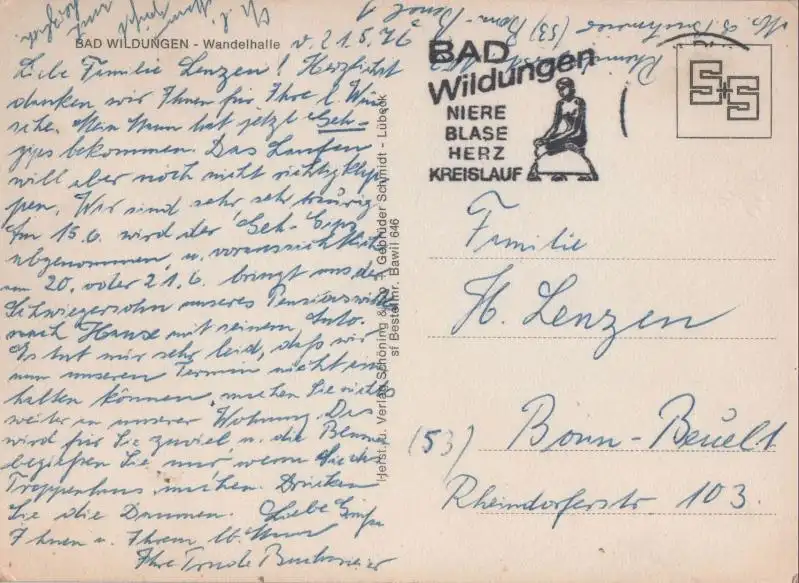 BAD WILDUNGEN - Wandelhalle
v. 21.5.76
Liebe Familie Lenzen! Herzlichst
danken wir Ihnen für Ihre l. Wün-
sche. Mein Mann hat jetzt Geh-
gips bekommen. Das Laufen
will aber noch nicht richtig klap-
pen. Wir sind sehr sehr traurig.
Am 15.6. wird der Geh-Gips
abgenommen, u. voraussichtlich
am 20. oder 21.6. bringt uns der
Schwiegersohn unseres Pensionswirtes
nach Hause mit seinem Auto.
Es tut mir sehr leid, daß wir
nun unseren Termin nicht ein-
halten können, machen Sie nichts
weiter in unserer Wohnung. Das
wird für Sie zuviel u. die Blumen
begießen Sie, nur wenn Sie das
Treppenhaus machen. Drücken
Sie die Daumen. Liebe Grüße
Ihnen u. Ihrem lb. Mann
Ihre Trude Buchmeier
Herst. u. Verlag Schöning & Co + Gebrüder Schmidt - Lübeck
sf Bestellnr. Bawil 646
BAD
Wildungen
NIERE
BLASE
HERZ
KREISLAUF
S+S
Familie
H. Lenzen
(53) Bonn-Beuel 1
Rheindorferstr. 103.